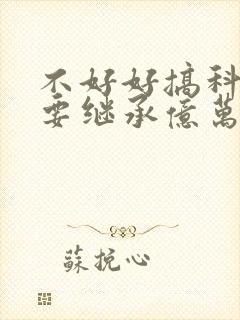 不好好搞科
要继承億萬
蘇挽心